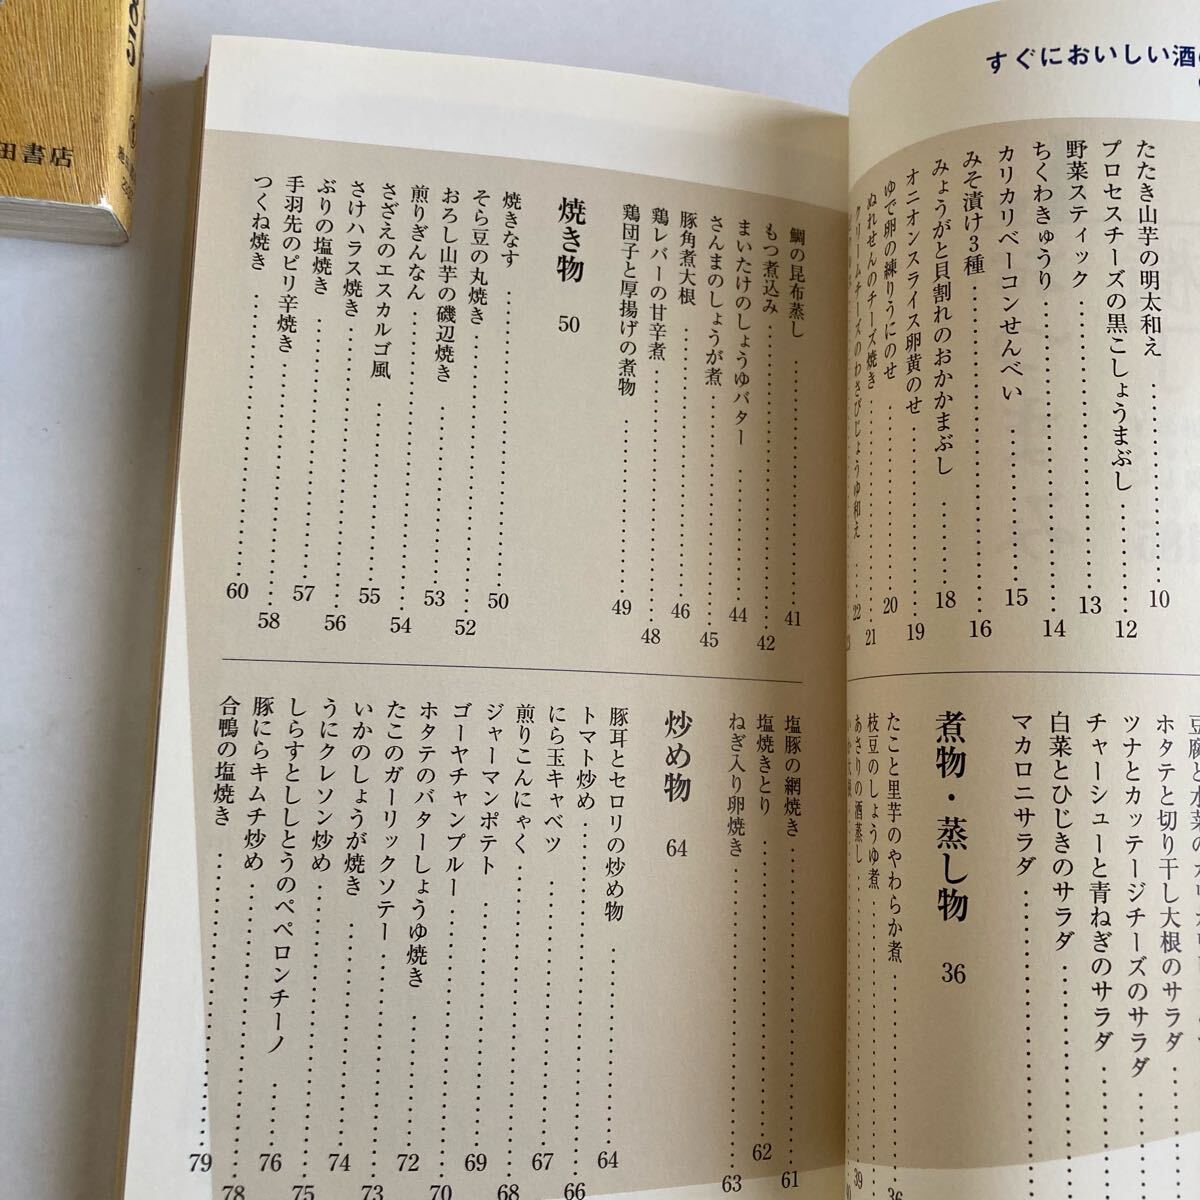 85
田書店
すぐにおいしい酒
たたき山芋の明太和え 10
プロセスチーズの黒こしょうまぶし 12
野菜スティック 13
ちくわきゅうり 14
カリカリベーコンせんべい 15
みそ漬け3種 16
みょうがと貝割れのおかかまぶし 18
オニオンスライス卵黄のせ 19
ゆで卵の練りうにのせ 20
ぬれせんのチーズ焼き 21
クリームチーズのわさびじょうゆ和え 22
ホタテと切り干し大根のサラダ
ツナとカッテージチーズのサラダ
チャーシューと青ねぎのサラダ
白菜とひじきのサラダ
マカロニサラダ
煮物・蒸し物 36
たこと里芋のやわらか煮 36
枝豆のしょうゆ煮
あさりの酒蒸し 39
鯛の昆布蒸し 41
もつ煮込み 42
まいたけのしょうゆバター 44
さんまのしょうが煮 45
豚角煮大根 46
鶏レバーの甘辛煮 48
鶏団子と厚揚げの煮物 49
焼き物 50
焼きなす 50
そら豆の丸焼き 52
おろし山芋の磯辺焼き 53
煎りぎんなん 54
さざえのエスカルゴ風 55
さけハラス焼き 56
ぶりの塩焼き 57
手羽先のピリ辛焼き 58
つくね焼き 60
塩豚の網焼き 61
塩焼きとり 62
ねぎ入り卵焼き 63
炒め物 64
豚耳とセロリの炒め物 64
トマト炒め 66
にら玉キャベツ 67
煎りこんにゃく 68
ジャーマンポテト 69
ゴーヤチャンプルー 70
ホタテのバターしょうゆ焼き 72
たこのガーリックソテー 73
いかのしょうが焼き 74
うにクレソン炒め 75
しらすとししとうのペペロンチーノ 76
豚にらキムチ炒め 78
合鴨の塩焼き 79